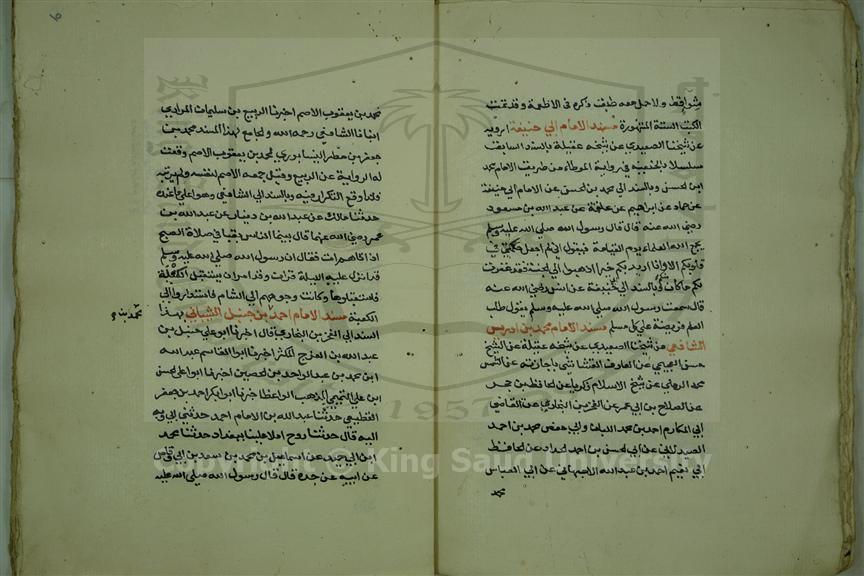 شواقط ولاجل جمعه طبقت ذكره في الاطعمة وقد تمت
الكتب الستة المشهورة مسند الامام ابي حنيفة ارويه
عن شيخنا الصعيدي عن شيخه عقيلة بالسند السابق
مسلسلا بالحنفية في رواية الموطاء من طريق الامام محمد
ابن الحسن وبالسند الي محمد بن الحسن عن الامام ابي حنيفة
عن حماد عن ابراهيم عن علقمة عن عبد الله بن مسعود
رضي الله عنه قال قال رسول الله صلي الله عليه وسلم
يجمع الله العلماء يوم القيامة فيقول اني لم اجعل حكمتي في
قلوبكم الا وانا اريد بكم خيرا اذهبوا الي الجنة فقد غفرت
لكم ما كان منكم وبالسند الي ابي حنيفة عن انس رضي الله عنه
قال سمعت رسول الله صلي الله عليه وسلم يقول طلب
العلم فريضة علي كل مسلم مسند الامام محمد بن ادريس
الشافعي عن شيخنا الصعيدي عن شيخه عقيلة عن الشيخ
حسن العجيمي عن العارف القشاشي باجازته عن الشمس
محمد الرملي عن شيخ الاسلام زكريا عن الحافظ بن حجر
عن الصلاح بن ابي عمر عن الفخر بن البخاري عن القاضي
ابي المكارم احمد بن محمد اللبان وابي جعفر محمد بن احمد
الصيدلاني عن ابي الحسن بن احمد الحداد عن الحافظ
ابي نعيم احمد بن عبد الله الاصبهاني عن ابي العباس
محمد
٦
محمد بن يعقوب الاصم اخبرنا الربيع بن سليمان المرادي
انبانا الشافعي رحمه الله والجامع لهذا المسند محمد بن
جعفر بن مطر النيسابوري لمحمد بن يعقوب الاصم وقعت
له الرواية عن الربيع وقيل جمعه الاصم لنفسه ولم يرتبه
فلذا وقع التكرار فيه وبالسند الي الشافعي وهو اعلي ما عنده
حدثنا مالك عن عبد الله بن دينار عن عبد الله بن
عمر رضي الله عنهما قال بينما الناس بقبا في صلاة الصبح
اذ اتاهم ات فقال ان رسول الله صلي الله عليه وسلم
قد انزل عليه الليلة قران وقد امر ان يستقبل الكعبة
فاستقبلوها وكانت وجوههم الي الشام فاستداروا الي
الكعبة مسند الامام احمد بن حنبل الشيباني بهذا
السند الي الفخر بن البخاري قال اخبرنا ابو علي حنبل بن
عبد الله بن الفرج المكثر اخبرنا ابو القاسم عبد الله
ابن محمد بن عبد الواحد بن الحصين اخبرنا ابو علي الحسن
ابن علي التميمي المذهب الواعظ اخبرنا ابو بكر احمد بن جعفر
القطيعي حدثنا عبد الله بن الامام احمد حدثني ابي
اليه قال حدثنا روح املا علينا ببغداد حدثنا محمد
ابن ابي حميد عن اسماعيل بن محمد بن سعد بن ابي وقاص
عن ابيه عن جده قال قال رسول الله صلي الله عليه
1957
Copyright © King Saud University